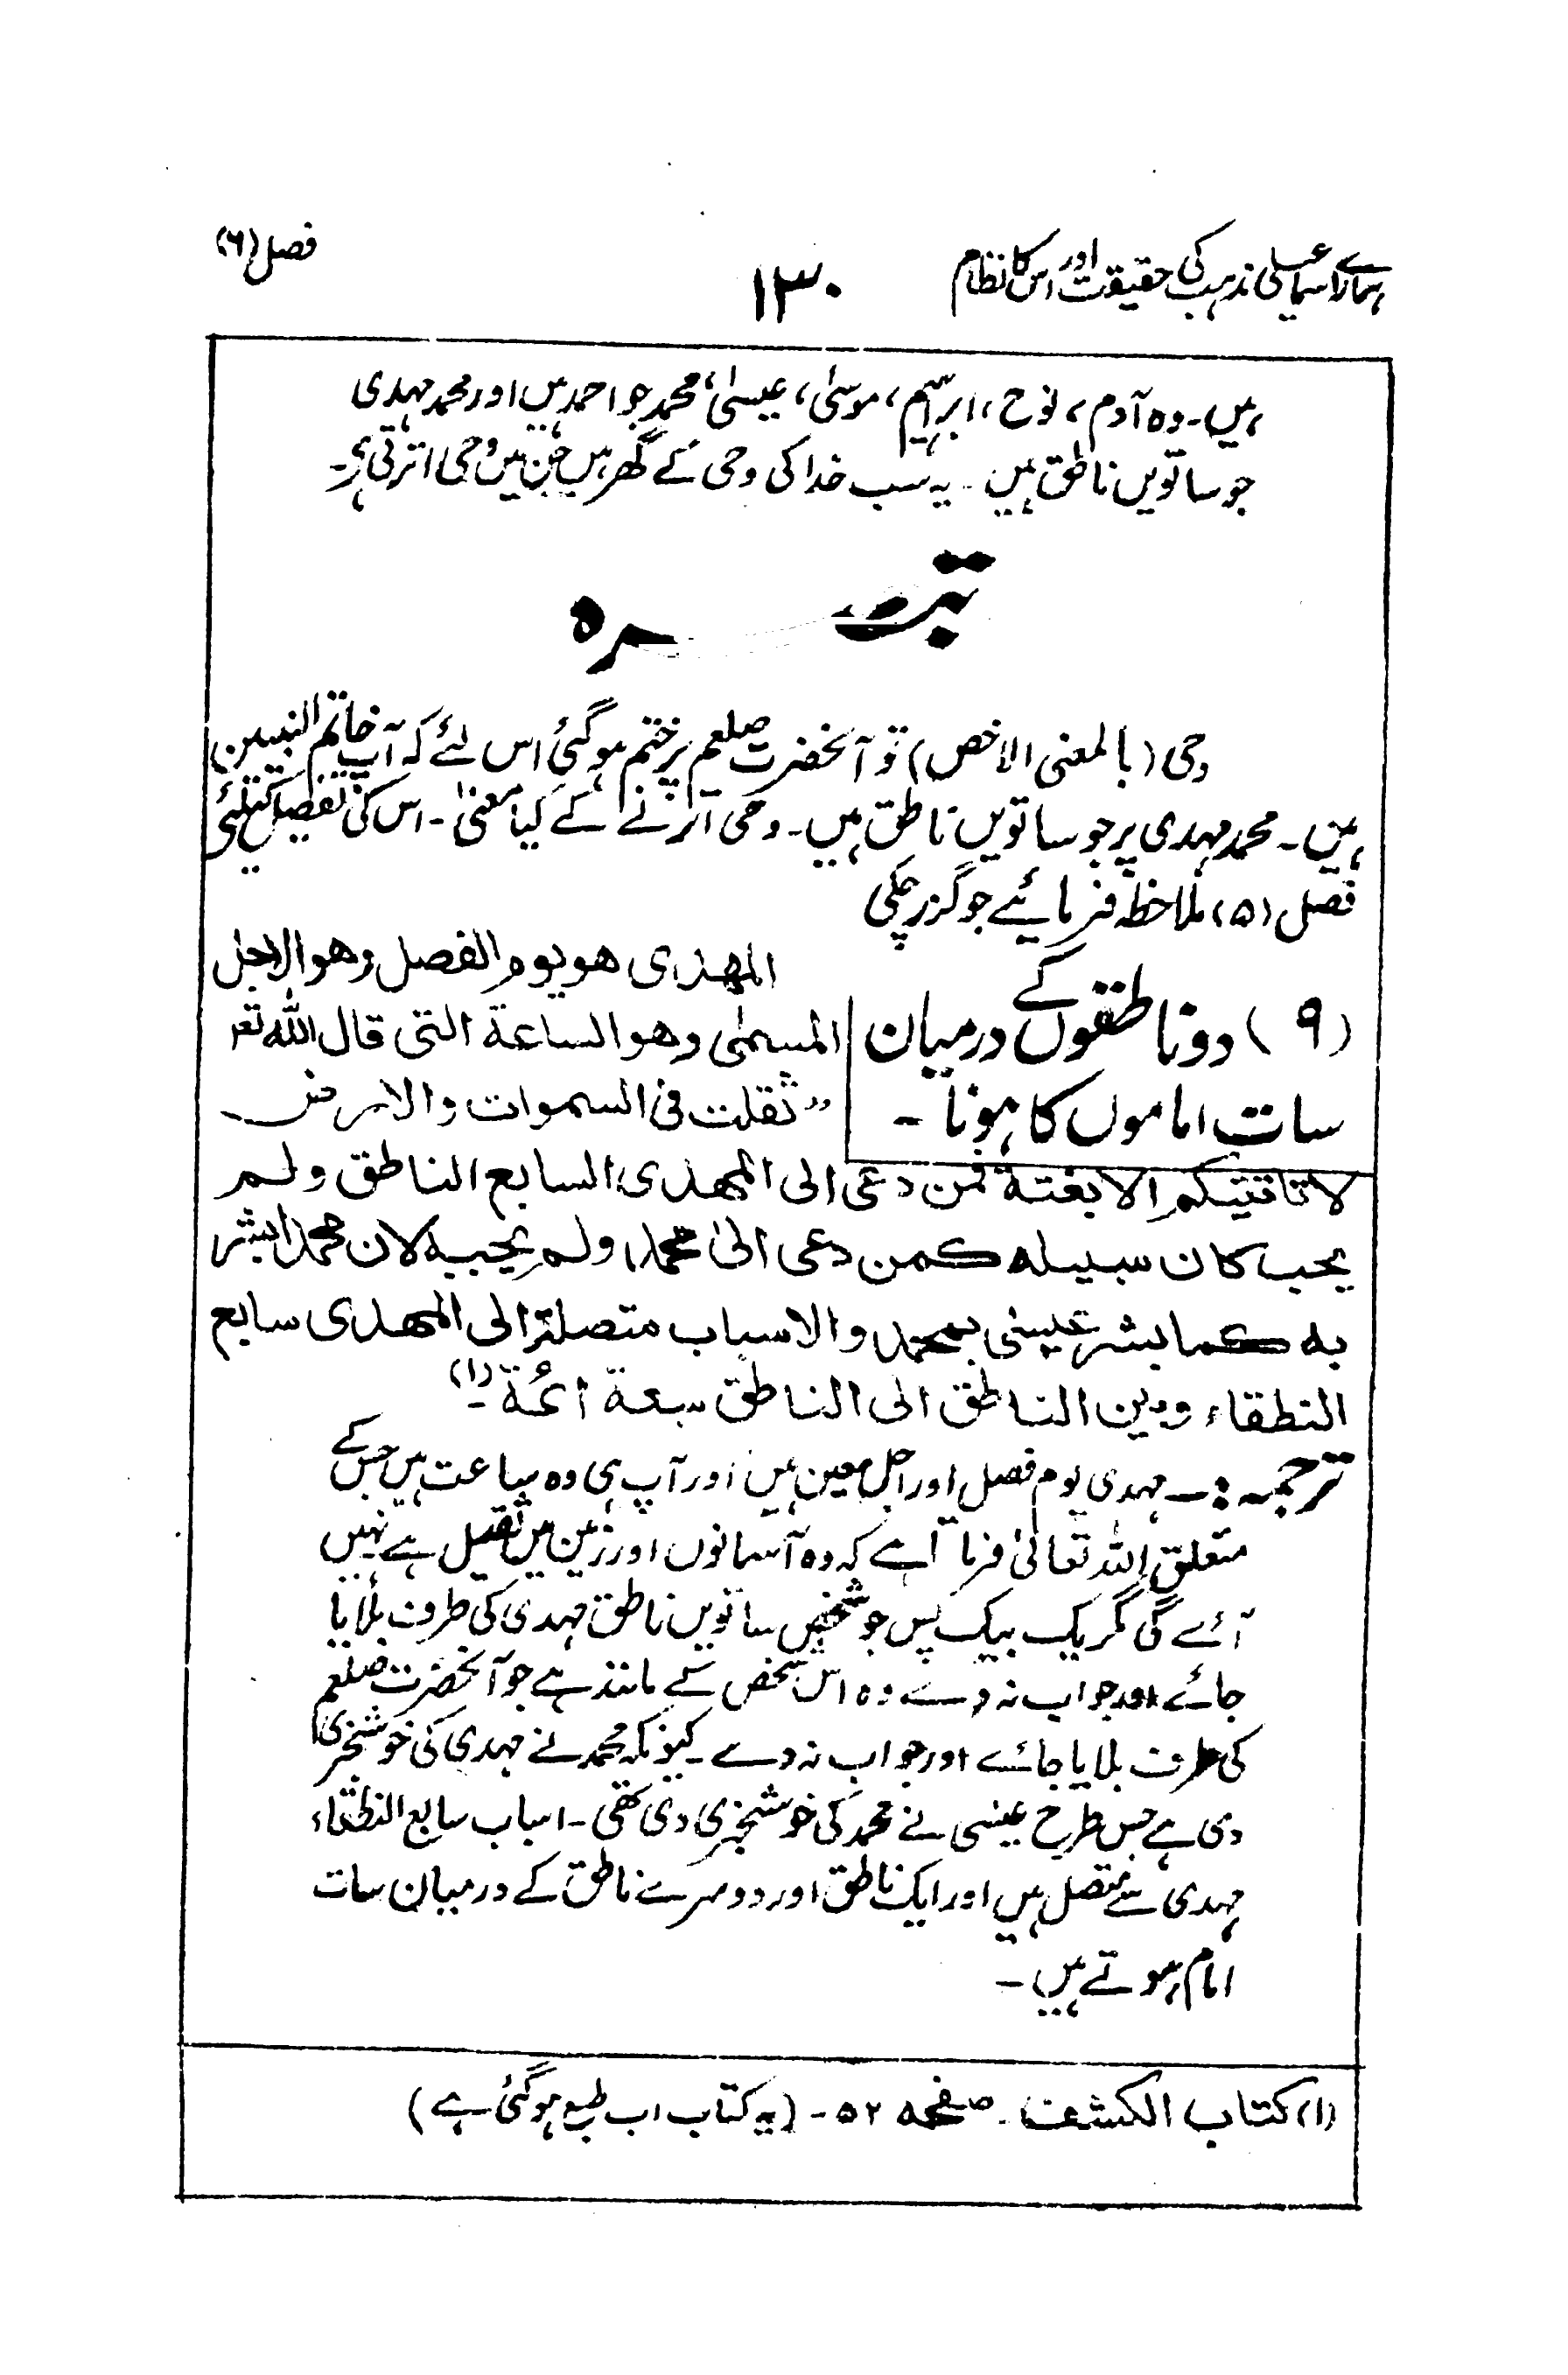 ہمارے اسماعیلی مذہب کی حقیقت اور اس کا نظام
۱۳۰
فصل (۶)
ہیں۔ وہ آدم، نوح، ابراہیم، موسیٰ، عیسیٰ، محمد جو احمد ہیں اور محمد مہدی
جو ساتویں ناطق ہیں۔ یہ سب خدا کی وحی کے گھر ہیں جن میں وحی اترتی ہے۔
تبصرہ
وحی (بالمعنی الاخص) تو آنحضرت صلعم پر ختم ہو گئی اس لئے کہ آپ خاتم النبیین
ہیں۔ محمد مہدی پر جو ساتویں ناطق ہیں۔ وحی اترنے کے کیا معنیٰ۔ اس کی تفصیل کیلئے
فصل (۵) ملاحظہ فرمائیے جو گزر چکی
(۹) دو ناطقوں کے درمیان
سات اماموں کا ہونا۔
المهدی هو یوم الفصل وهو الاجل
المسمی وهو الساعة التی قال الله تعـ
"ثقلت فی السموات والارض
لا تاتیکم الا بغتة فمن دعی الی المهدی السابع الناطق ولم
یجب کان سبیله کمن دعی الی محمد ولم یجبه لان محمدا بشر
به کما بشر عیسی بمحمد والاسباب متصلة الی المهدی سابع
النطقاء وبین الناطق الی الناطق سبعة ائمة۔(۱)
ترجمہ:۔ مہدی یوم فصل اور اجل معین ہیں اور آپ ہی وہ ساعت ہیں جس کے
متعلق اللہ تعالیٰ فرماتا ہے کہ وہ آسمانوں اور زمین میں ثقیل ہے نہیں
آئے گی مگر یک بیک پس جو شخص ساتویں ناطق مہدی کی طرف بلایا
جائے اور جواب نہ دے وہ اس شخص کے مانند ہے جو آنحضرت صلعم
کی طرف بلایا جائے اور جواب نہ دے۔ کیونکہ محمد نے مہدی کی خوشخبری
دی ہے جس طرح عیسیٰ نے محمد کی خوشخبری دی تھی۔ اسباب سابع النطقاء
مہدی سے متصل ہیں اور ایک ناطق اور دوسرے ناطق کے درمیان سات
امام ہوتے ہیں۔
(۱) کتاب الکشف۔ صفحہ ۵۲۔ (یہ کتاب اب طبع ہو گئی ہے)